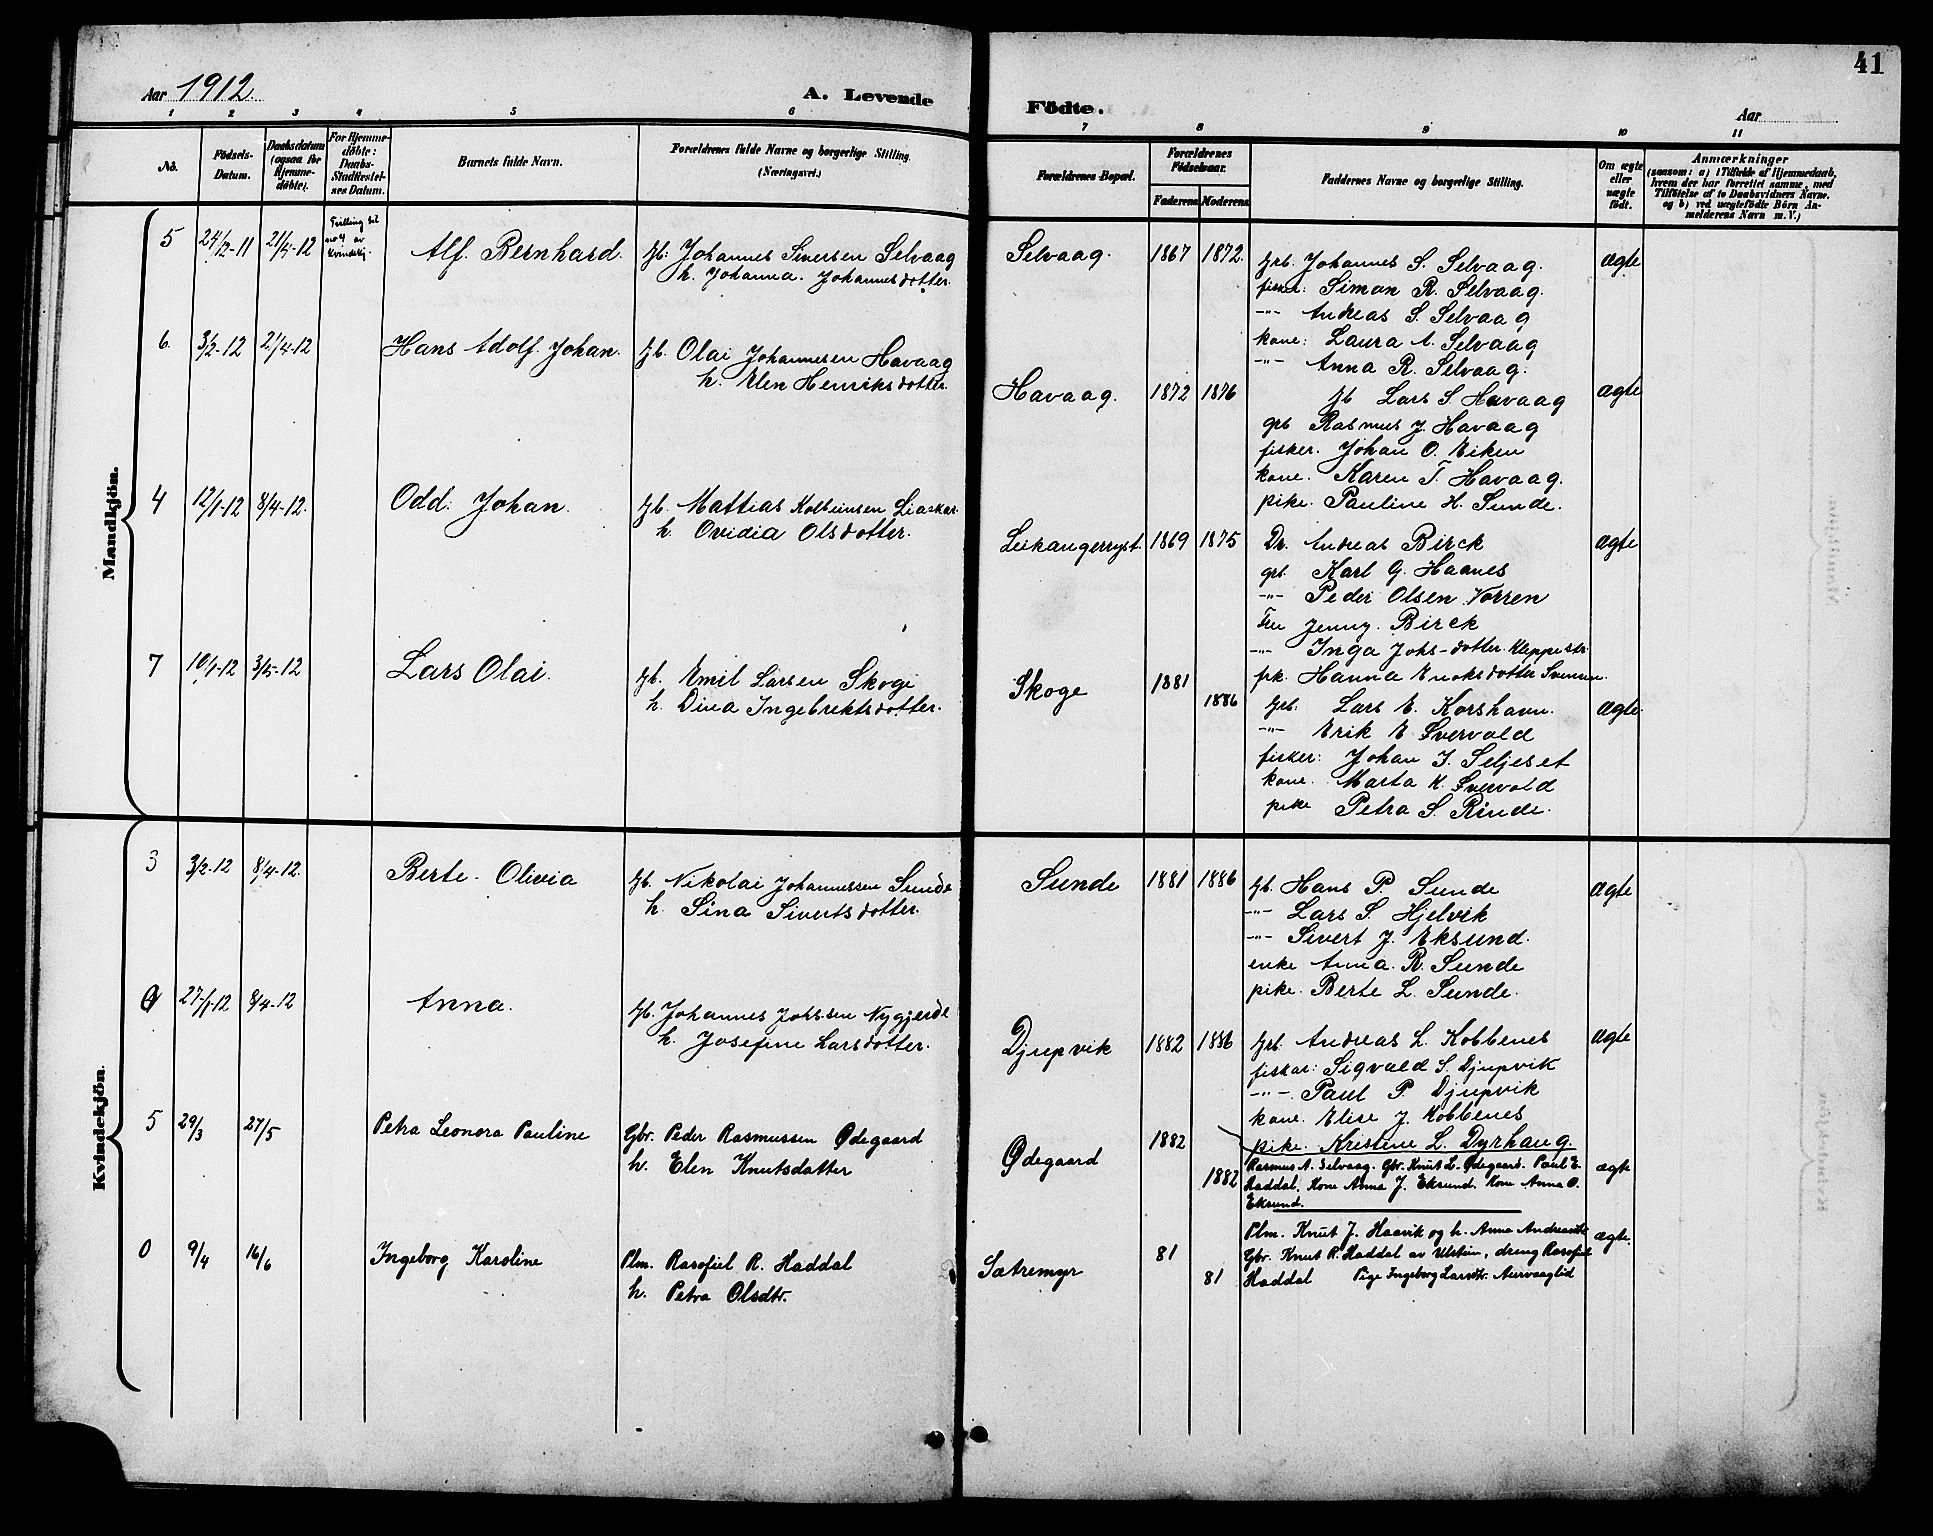 41
Aar 1912.
A. Levende
Fødte.
Aar
1 2 3 4 5 6 7 8 9 10 11
No.
Fødsels-
Datum.
Daabsdatum
(ogsaa for
Hjemme-
døbte).
For Hjemme-
døbte:
Daabs-
Stadfæstel-
ses Datum.
Barnets fulde Navn.
Forældrenes fulde Navne og borgerlige Stilling.
(Næringsvei.)
Forældrenes Bopæl.
Forældrenes
Fødselsaar.
Faderens
Moderens
Faddernes Navne og borgerlige Stilling.
Om ægte
eller
uægte
født.
Anmærkninger
(saasom: a) i Tilfælde af Hjemmedaab,
hvem der har forrettet samme, med
Tilføielse af to Daabsvidners Navne.
og b) ved uægtefødte Børn An-
melderens Navn m. V.)
Mandkjøn.
5 24/12-11 21/4-12 Tvilling til
no 4 av
Kvindekj.
Alf. Bernhard.
Gb: Johannes Siversen Selvaag
h. Johanna. Johannesdotter.
Selvaag. 1867 1872.
Grb. Johannes S. Selvaag.
fisker: Simon R. Selvaag.
-"- Andreas S. Selvaag
kone: Laura A. Selvaag
-"- Anna R. Selvaag.
ægte
6. 3/2-12 21/4-12 Hans Adolf. Johan.
Gb. Olai Johannesen Havaag
h. Elen Henriksdotter.
Havaag. 1872 1876
Gb Lars S. Havaag
grb Rasmus J. Havaag
fisker. Johan O. Eiken
kone. Karen T. Havaag.
pike. Pauline H. Sunde.
ægte
4 12/1-12 8/4-12. Odd: Johan.
Gb. Mattias Kolbeinsen
h. Ovidia Olsdotter.
Leikangerryst. 1869 1875
Dr. Andreas Birck
grb. Karl G. Haanes
-"- Peder Olsen Vorren
Fru Jenny. Birck
-"- Inga Johs-dotter. Kleppestr.
pk. Hanna Enoksdotter Svensen.
ægte
7 10/1-12 3/5-12 Lars Olai.
Gb. Emil Larsen Skoge
h. Dina Ingebrektsdotter.
Skoge 1881 1886
Grb. Lars E. Korshavn.
-"- Erik E. Svervold
fisker: Johan J. Seljeset
kone. Marta K. Svervold
pike Petra S. Rinde.
ægte.
Kvindekjøn.
3 3/2-12 8/4-12. Berte. Olivia
Gb. Nikolai Johannessen Sunde
h. Sina Sivertsdotter.
Sunde 1881 1886
Gb. Hans P. Sunde
-"- Lars S. Hjelvik
-"- Sivert J. Eksund.
enke Anna. R. Sunde
pike. Berte L. Sunde.
ægte
27/1-12 8/4-12 Anna.
Gb. Johannes Johssen Nygjerde
h. Josefine Larsdotter.
Djupvik 1882 1886
Grb. Andreas L. Kobbenes
fisker: Sigvald S. Djupvik
-"- Paul P. Djupvik
kone. Elise J. Kobbenes
pike. Kristine L. Dyrhaug.
ægte
5 29/3 27/5 Petra Leonora Pauline
Gbr. Peder Rasmussen Ødegaard
h. Elen Knutsdatter
Ødegaard 1882 1882
Rasmus A. Selvaag. Gbr. Knut L. Ødegaard. Paul E.
Haddal, Kone Anna J. Eksund. Kone Anna O.
Eksund.
ægte
0 9/4 16/6 Ingeborg Karoline
Plm. Rasofiel R. Haddal
h. Petra Olsdtr.
Sætremyr 81 81
Plm. Knut J. Haavik og h. Anna
Gbr. Knut R. Haddal av Ulstein, dreng Rasofiel
Haddal Pige Ingeborg Larsdtr. Aurvaaglid
ægte.